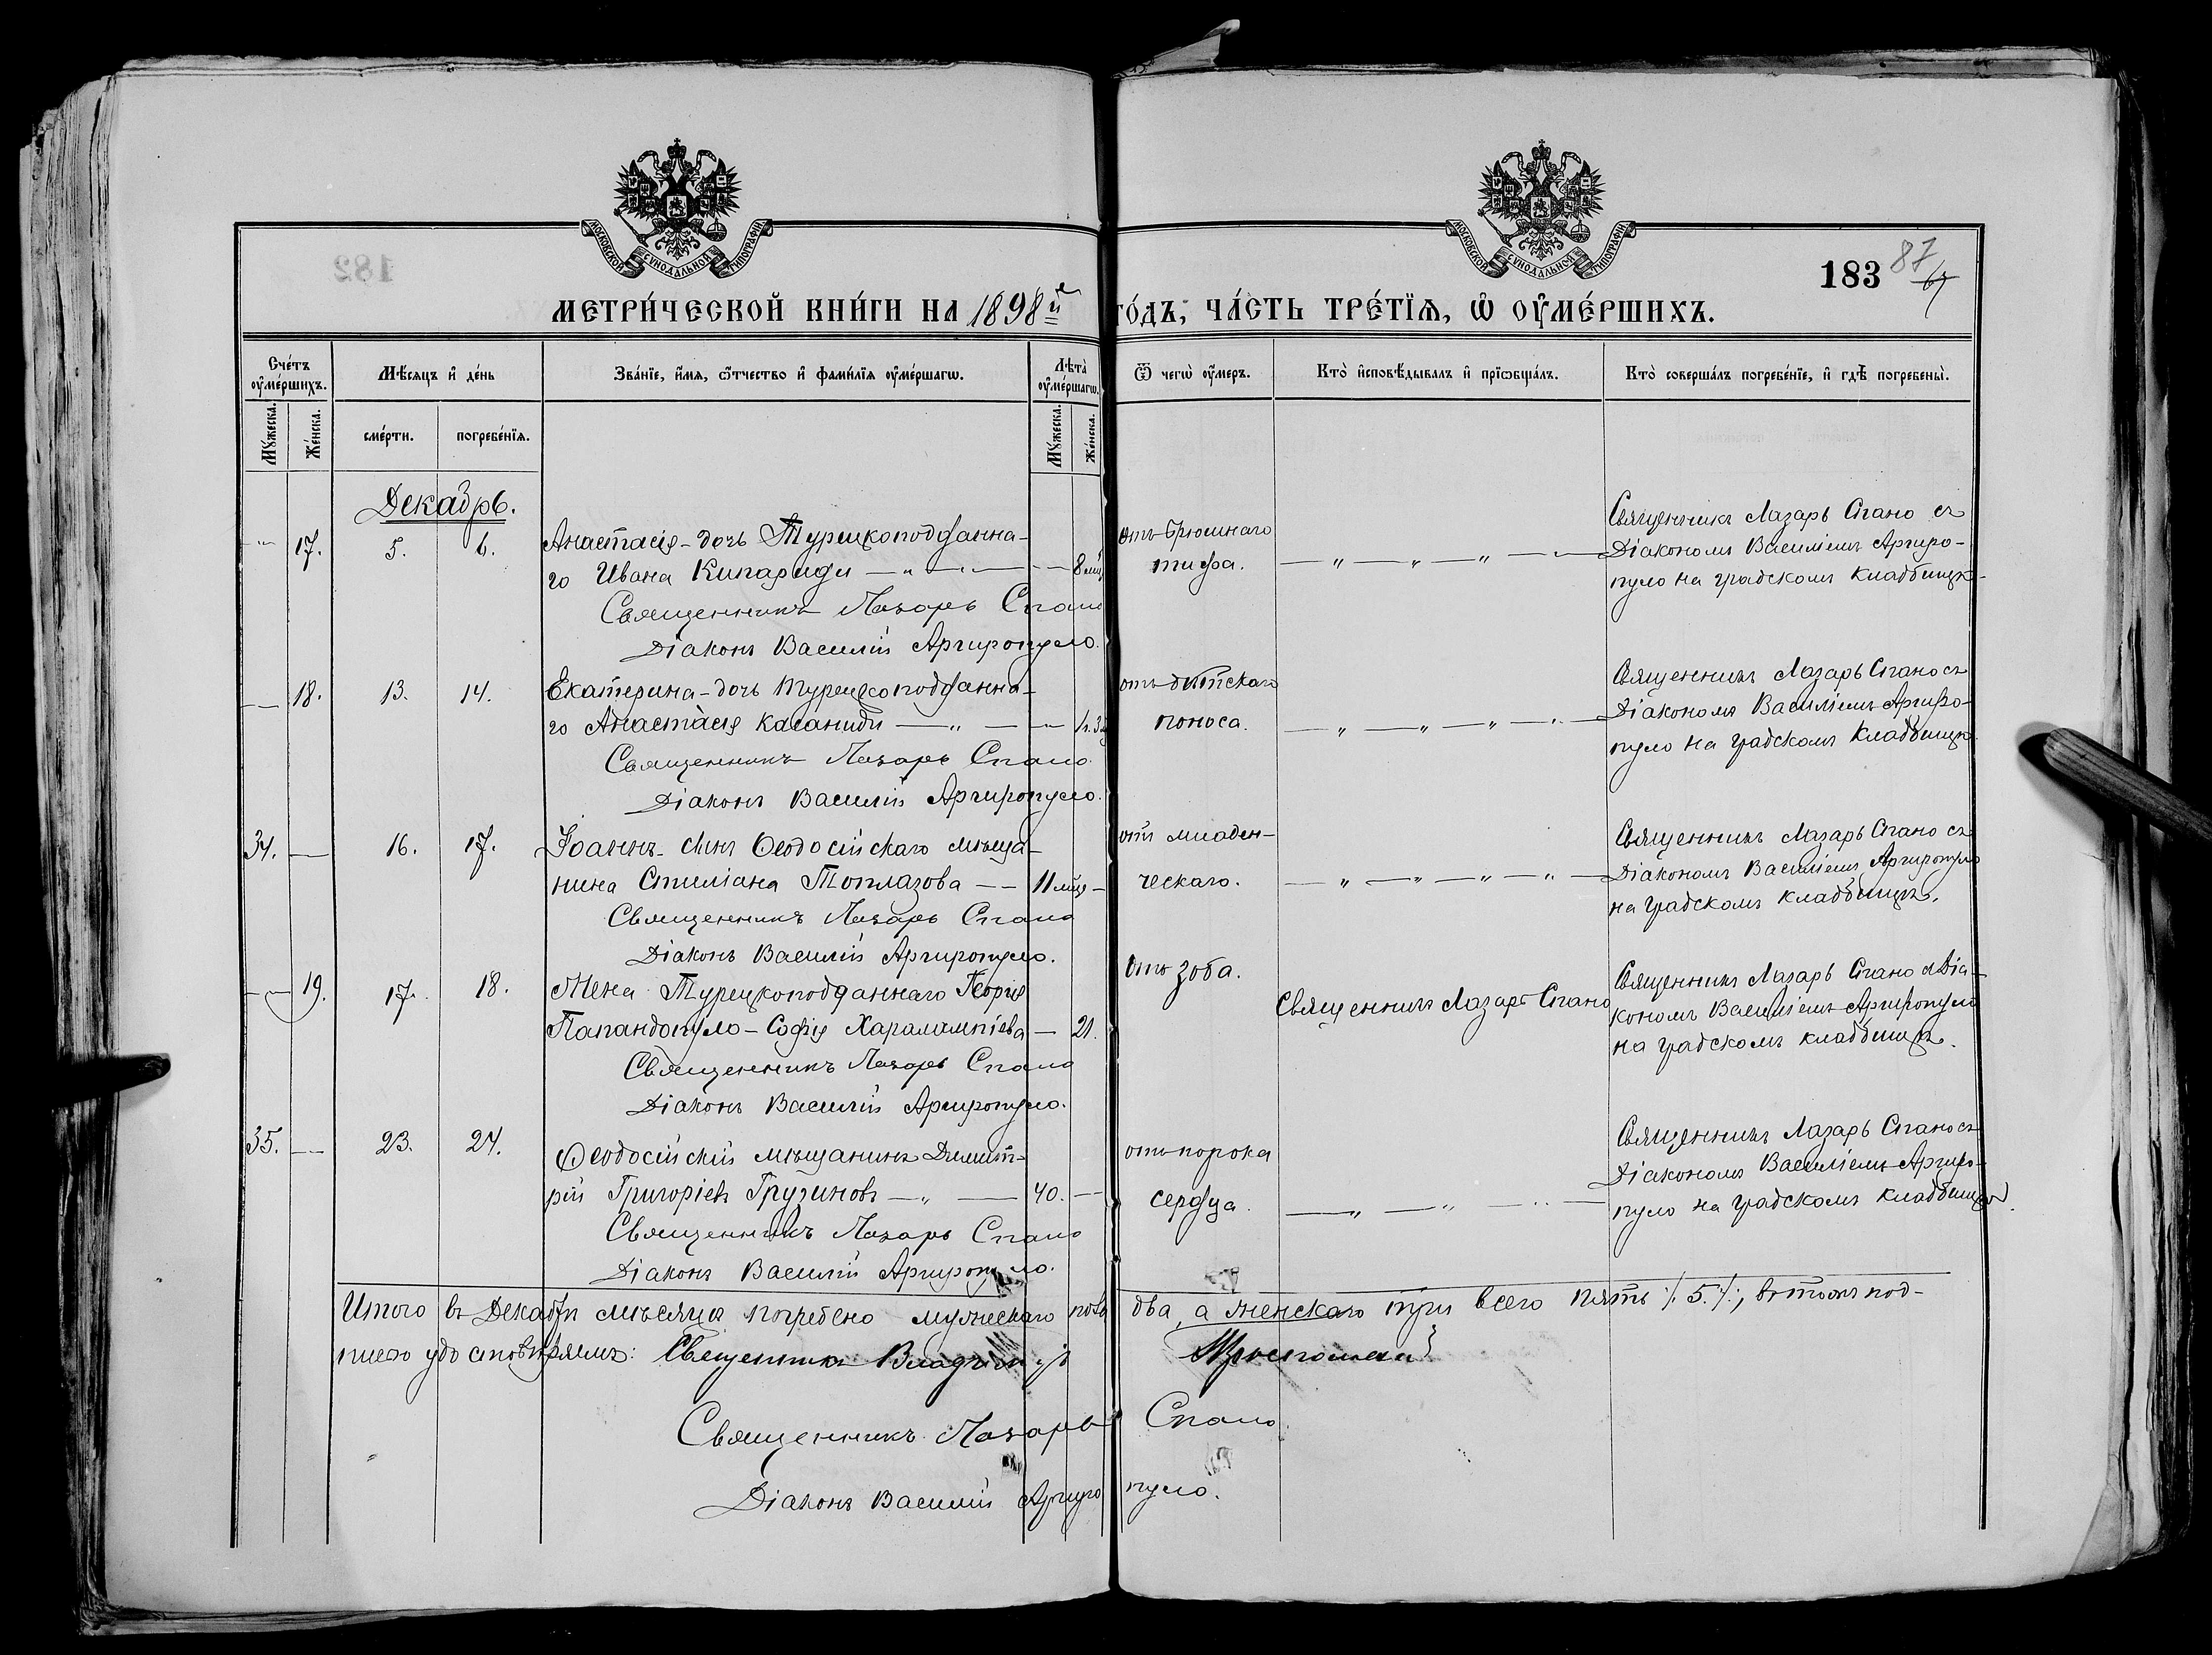 МОСКОВСКОЙ СУНОДАЛЬНОЙ ТИПОГРАФІИ
МОСКОВСКОЙ СУНОДАЛЬНОЙ ТИПОГРАФІИ
182
183 87
МЕТРИ́ЧЕСКОЙ КНИ́ГИ НА 1898й ГО́ДЪ, ЧА́СТЬ ТРЕ́ТІѦ, Ѡ҆ ОУ҆МЕ́РШИХЪ.
Сче́тъ оу҆ме́ршихъ.
Мѣ́сѧцъ и҆ де́нь
Зва́нїе, и҆́мѧ, ѻ҆́тчество и҆ фами́лїѧ оу҆ме́ршагѡ.
Лѣ́та оу҆ме́ршагѡ.
Ѿ чегѡ̀ оу҆́меръ.
Кто̀ и҆сповѣ́дывалъ и҆ прїѡбща́лъ.
Кто̀ соверша́лъ погребе́нїе, и҆ гдѣ̀ погребены̀.
Мꙋ́жеска.
Же́нска.
сме́рти.
погребе́нїѧ.
Мꙋ́жеска.
Же́нска.
Декабрь.
17. 5. 6. Анастасія - дочь Турецкоподданна-
го Ивана Кипариди — „ — 8 мц
Священникъ Лазарь Спано
Діаконъ Василій Аргиропуло.
отъ брюшнаго
тифа. — „ — „ — „ —
Священникъ Лазарь Спано съ
Діакономъ Василіемъ Аргиро-
пуло на градскомъ кладбищѣ.
18. 13. 14. Екатерина - дочь турецкоподданна-
го Анастасія Касаниди — „ —
Священникъ Лазарь Спано
Діаконъ Василій Аргиропуло.
отъ дѣтскаго
поноса. — „ — „ — „ —
Священникъ Лазарь Спано съ
Діакономъ Василіемъ Аргиро-
пуло на градскомъ кладбищѣ.
34. — 16. 17. Іоаннъ - сынъ Ѳеодосійскаго мѣща-
нина Стиліана Топлазова — 11 мцѣ —
Священникъ Лазарь Спано
Діаконъ Василій Аргиропуло.
отъ младен-
ческаго. — „ — „ — „ — „ —
Священникъ Лазарь Спано съ
Діакономъ Василіемъ Аргиропуло
на градскомъ кладбищѣ.
19. 17. 18. Жена Турецкоподданнаго Георгія
Папандопуло - Софія Харалампіева — 21.
Священникъ Лазарь Спано
Діаконъ Василій Аргиропуло.
отъ зоба.
Священникъ Лазарь Спано
Священникъ Лазарь Спано съ Діа-
кономъ Василіемъ Аргиропуло
на градскомъ кладбищѣ.
35. — 23. 24. Ѳеодосійскій мѣщанинъ Димит-
рій Григорьевъ Грузиновъ — „ — 40. —
Священникъ Лазарь Спано
Діаконъ Василій Аргиропуло.
отъ порока
сердца. — „ — „ —
Священникъ Лазарь Спано съ
Діакономъ Василіемъ Аргиро-
пуло на градскомъ кладбищѣ.
Итого въ Декабрѣ мѣсяцѣ погребено мужескаго пола два, а женскаго три всего пять /. 5. /:, въ томъ под-
писью удостовѣряемъ: Священникъ
Священникъ Лазарь Спано.
Діаконъ Василій Аргиропуло.